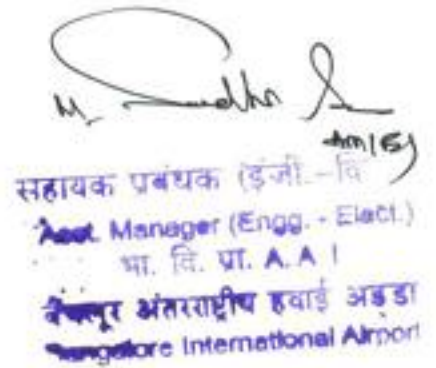 M.
AM(E)
सहायक प्रबंधक (इंजी.-वि
Asst. Manager (Engg. - Elect.)
भा. वि. प्रा. A. A I
अंतरराष्ट्रीय हवाई अड्डा
International Airport